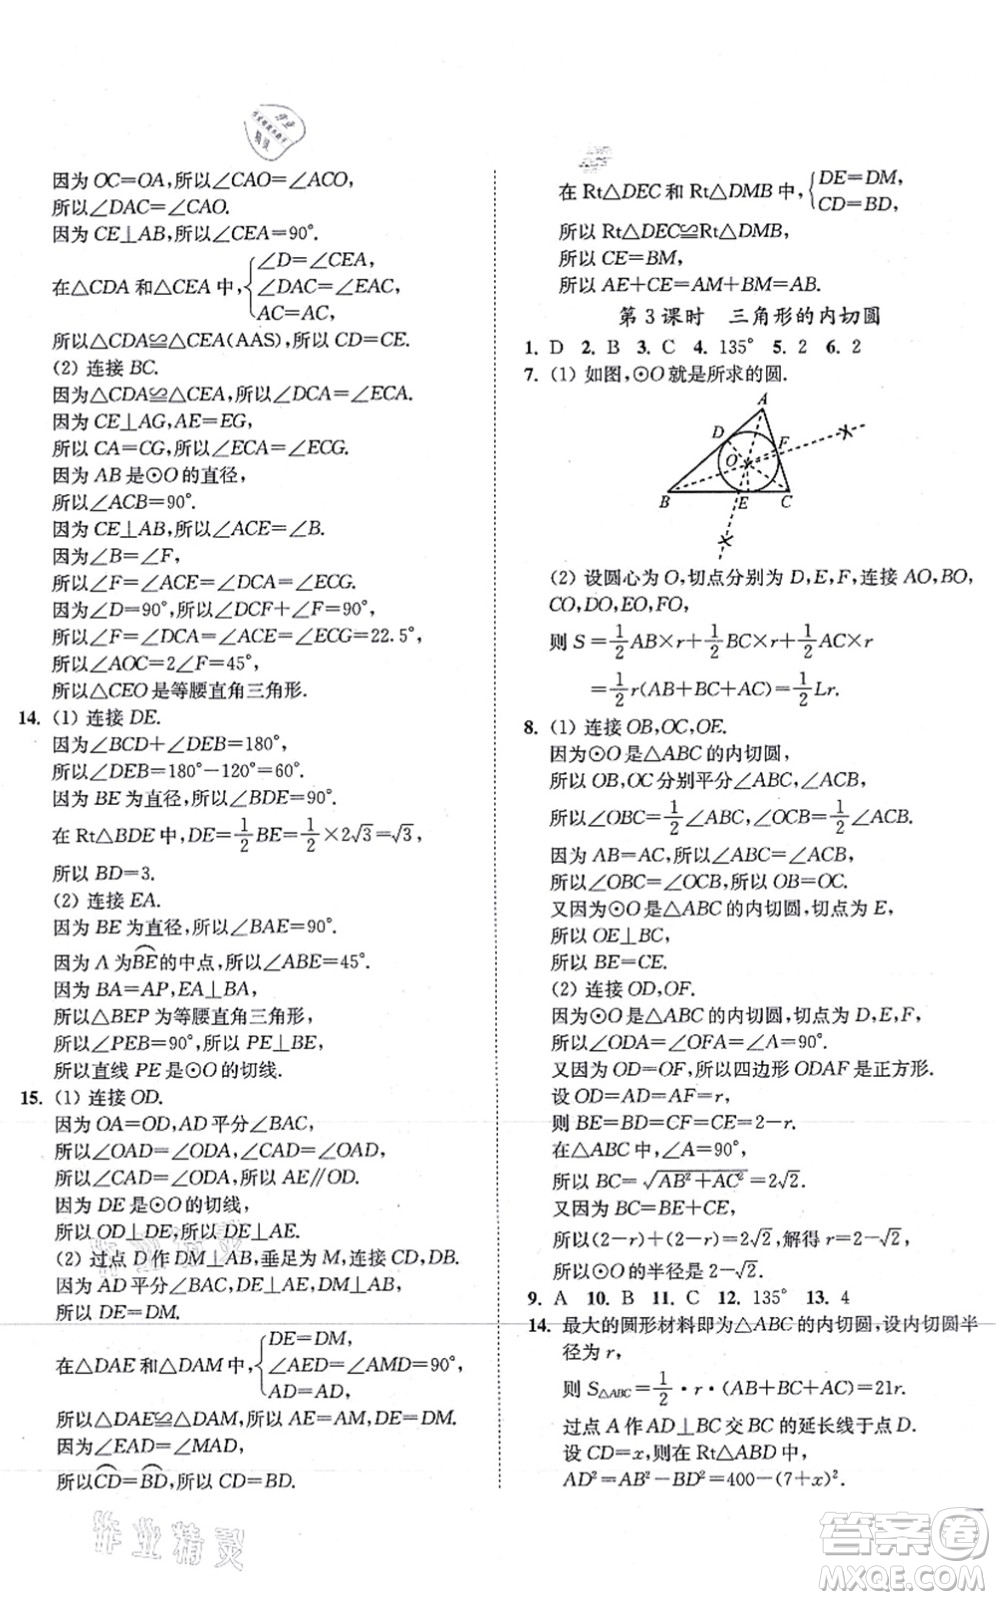 因为 OC=OA,所以∠CAO=∠ACO,
所以∠DAC=∠CAO.
因为 CE⊥AB,所以∠CEA=90°.
在△CDA 和△CEA 中,{∠D=∠CEA,
∠DAC=∠EAC,
AC=AC,
所以△CDA≌△CEA(AAS),所以 CD=CE.
(2) 连接 BC.
因为△CDA≌△CEA,所以∠DCA=∠ECA.
因为 CE⊥AG,AE=EG,
所以 CA=CG,所以∠ECA=∠ECG.
因为 AB 是⊙O 的直径,
所以∠ACB=90°.
因为 CE⊥AB,所以∠ACE=∠B.
因为∠B=∠F,
所以∠F=∠ACE=∠DCA=∠ECG.
因为∠D=90°,所以∠DCF+∠F=90°,
所以∠F=∠DCA=∠ACE=∠ECG=22.5°,
所以∠AOC=2∠F=45°,
所以△CEO 是等腰直角三角形.
14. (1) 连接 DE.
因为∠BCD+∠DEB=180°,
所以∠DEB=180°-120°=60°.
因为 BE 为直径,所以∠BDE=90°.
在 Rt△BDE 中,DE=1/2BE=1/2×2√3=√3,
所以 BD=3.
(2) 连接 EA.
因为 BE 为直径,所以∠BAE=90°.
因为 A 为BE的中点,所以∠ABE=45°.
因为 BA=AP,EA⊥BA,
所以△BEP 为等腰直角三角形,
所以∠PEB=90°,所以 PE⊥BE,
所以直线 PE 是⊙O 的切线.
15. (1) 连接 OD.
因为 OA=OD,AD 平分∠BAC,
所以∠OAD=∠ODA,∠CAD=∠OAD,
所以∠CAD=∠ODA,所以 AE∥OD.
因为 DE 是⊙O 的切线,
所以 OD⊥DE,所以 DE⊥AE.
(2) 过点 D 作 DM⊥AB,垂足为 M,连接 CD,DB.
因为 AD 平分∠BAC,DE⊥AE,DM⊥AB,
所以 DE=DM.
在△DAE 和△DAM 中,{DE=DM,
∠AED=∠AMD=90°,
AD=AD,
所以△DAE≌△DAM,所以 AE=AM,DE=DM.
因为∠EAD=∠MAD,
所以CD=BD,所以 CD=BD.
作业精灵
在 Rt△DEC 和 Rt△DMB 中,{DE=DM,
CD=BD,
所以 Rt△DEC≌Rt△DMB,
所以 CE=BM,
所以 AE+CE=AM+BM=AB.
第 3 课时 三角形的内切圆
1. D 2. B 3. C 4. 135° 5. 2 6. 2
7. (1) 如图,⊙O 就是所求的圆.
A
D
F
O
B
E
C
(2) 设圆心为 O,切点分别为 D,E,F,连接 AO,BO,
CO,DO,EO,FO,
则 S=1/2AB×r+1/2BC×r+1/2AC×r
=1/2r(AB+BC+AC)=1/2Lr.
8. (1) 连接 OB,OC,OE.
因为⊙O 是△ABC 的内切圆,
所以 OB,OC 分别平分∠ABC,∠ACB,
所以∠OBC=1/2∠ABC,∠OCB=1/2∠ACB.
因为 AB=AC,所以∠ABC=∠ACB,
所以∠OBC=∠OCB,所以 OB=OC.
又因为⊙O 是△ABC 的内切圆,切点为 E,
所以 OE⊥BC,
所以 BE=CE.
(2) 连接 OD,OF.
因为⊙O 是△ABC 的内切圆,切点为 D,E,F,
所以∠ODA=∠OFA=∠A=90°.
又因为 OD=OF,所以四边形 ODAF 是正方形.
设 OD=AD=AF=r,
则 BE=BD=CF=CE=2-r.
在△ABC 中,∠A=90°,
所以 BC=√AB²+AC²=2√2.
又因为 BC=BE+CE,
所以(2-r)+(2-r)=2√2,解得 r=2-√2,
所以⊙O 的半径是 2-√2.
9. A 10. B 11. C 12. 135° 13. 4
14. 最大的圆形材料即为△ABC 的内切圆,设内切圆半
径为 r,
则 S△ABC=1/2·r·(AB+BC+AC)=21r.
过点 A 作 AD⊥BC 交 BC 的延长线于点 D.
设 CD=x,则在 Rt△ABD 中,
AD²=AB²-BD²=400-(7+x)².
答案圈
MXQE.COM